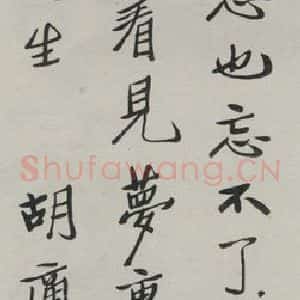 也忘不了.
看見夢
生 胡適
Shufawang.CN